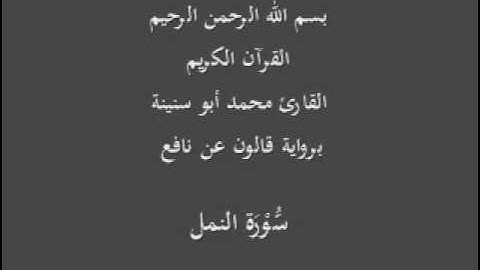 بسم الله الرحمن الرحيم
القرآن الكريم
القارئ محمد أبو سنينة
برواية قالون عن نافع
سُّوْرَة النمل